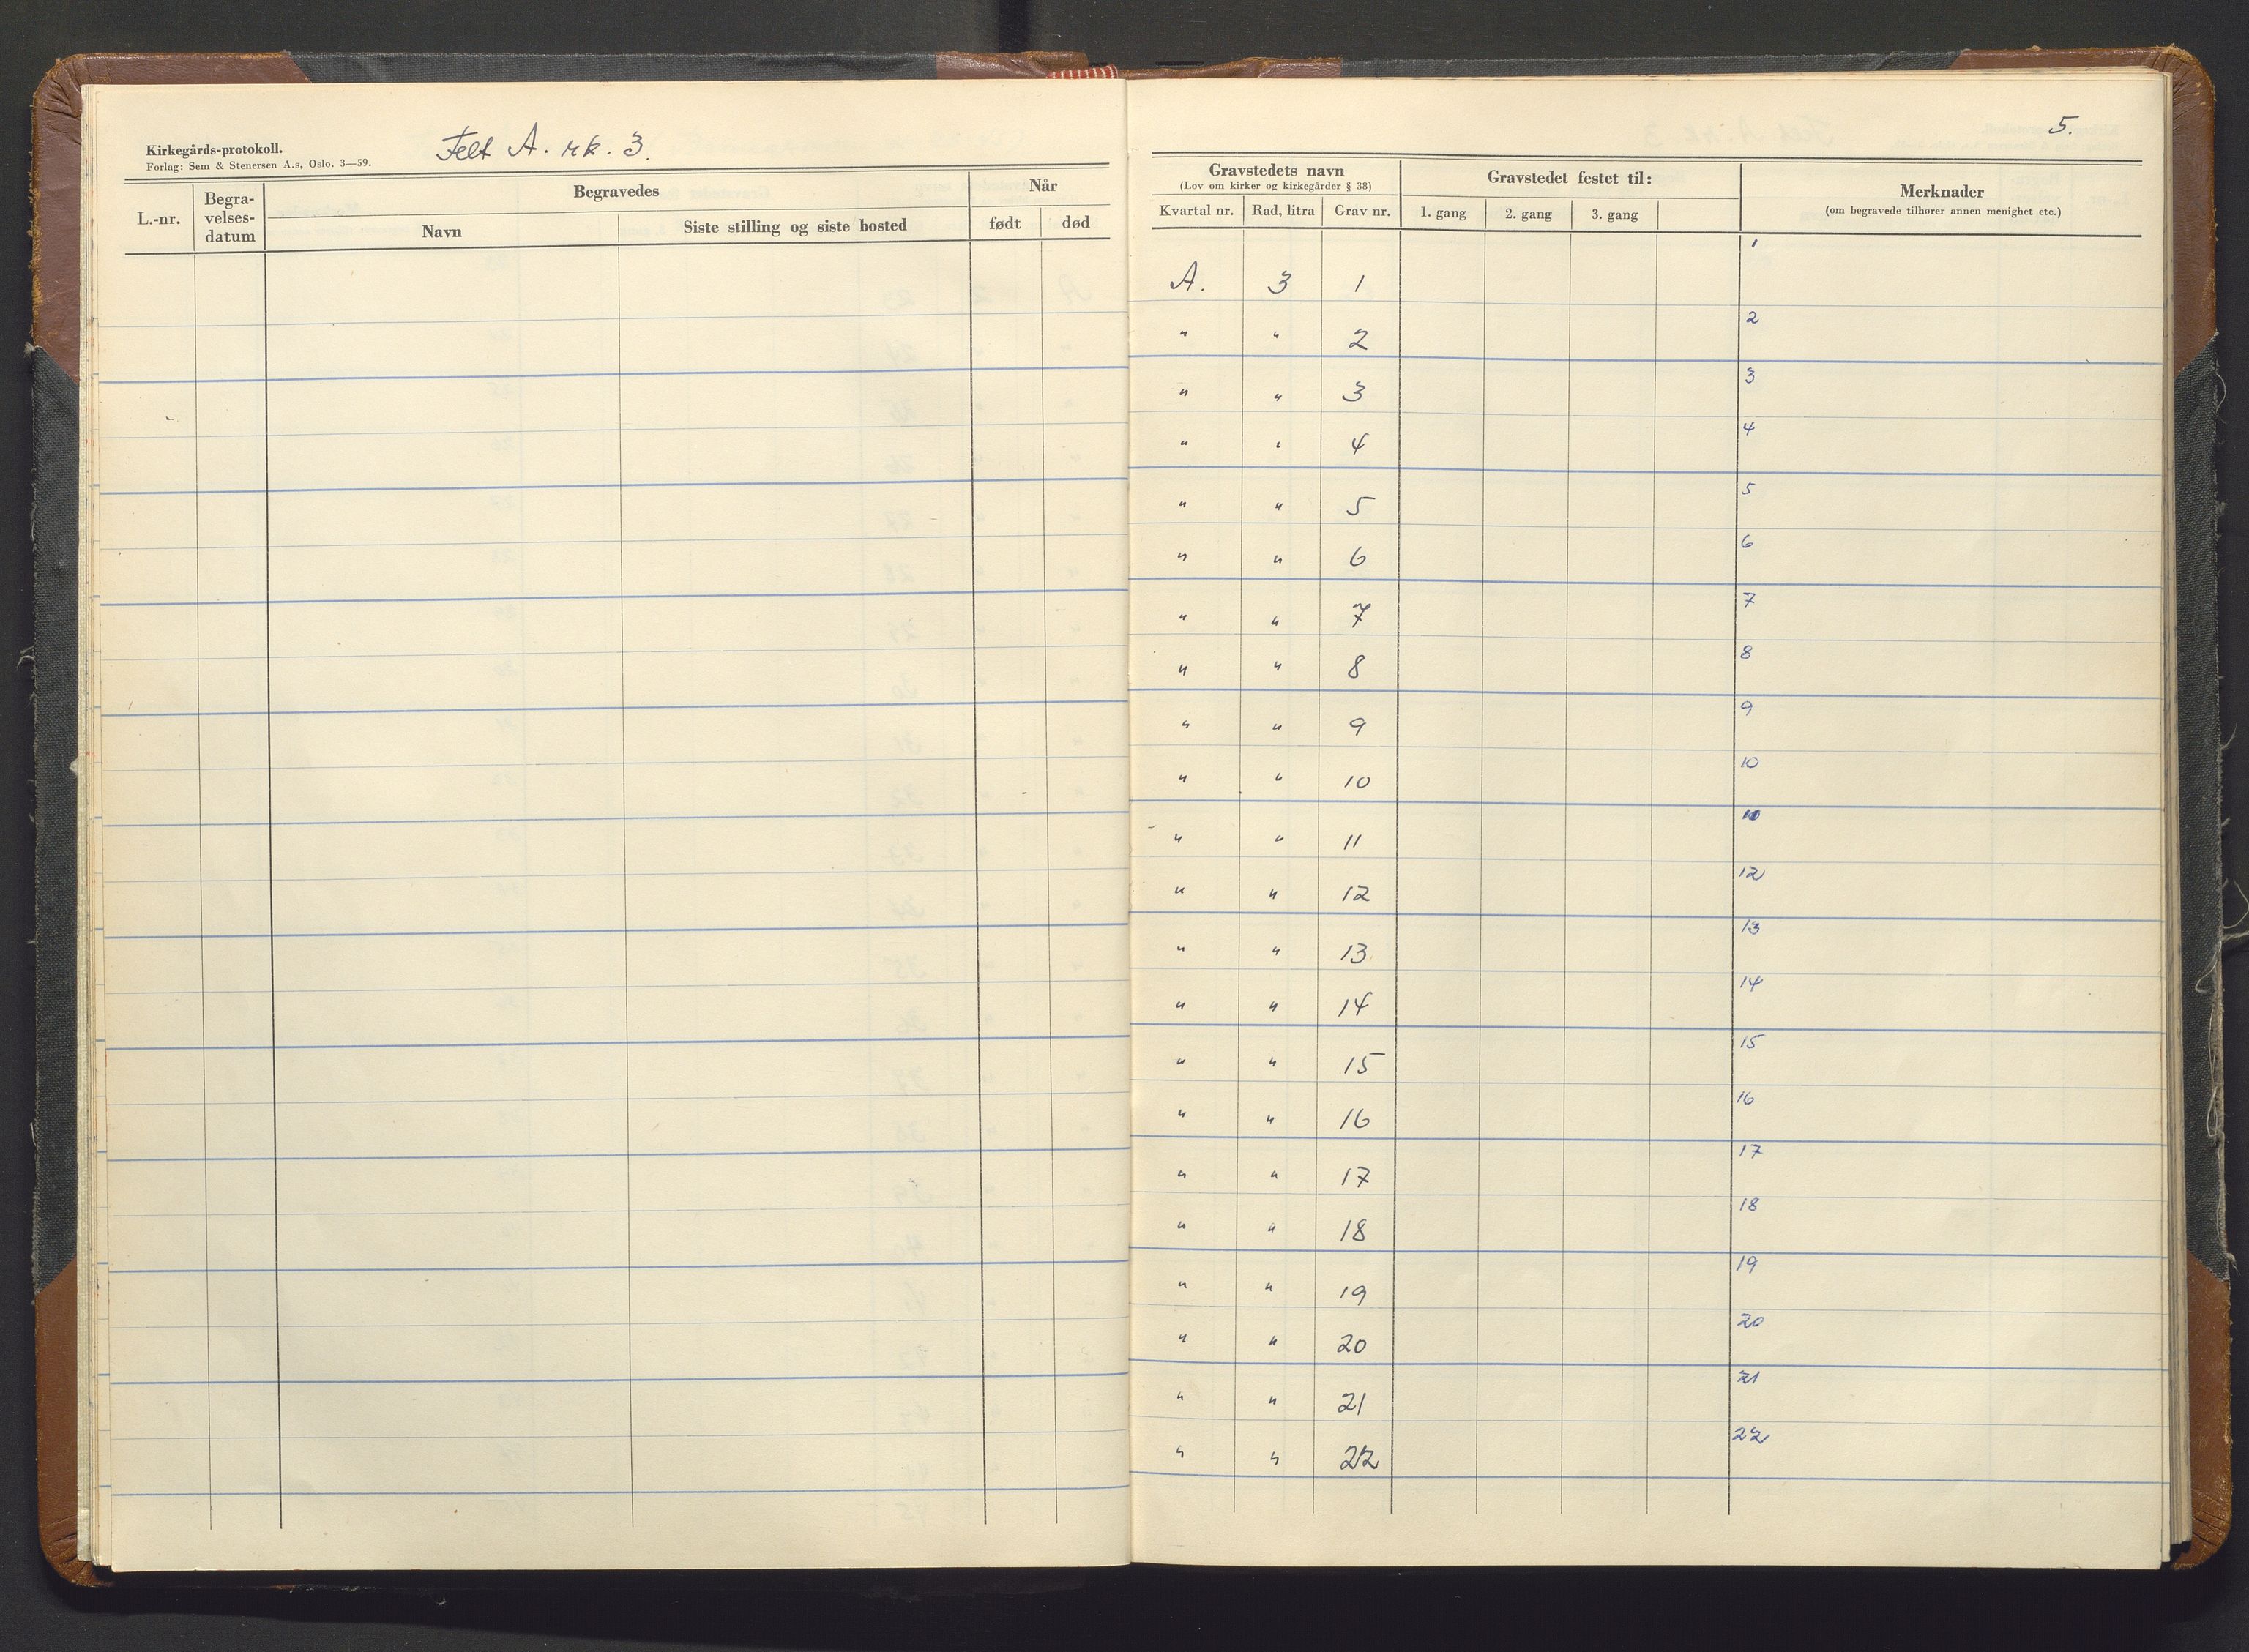 Kirkegårds-protokoll.
Forlag: Sem & Stenersen A.s, Oslo. 3—59.
Felt A. rk. 3.
L.-nr.
Begra-
velses-
datum
Begravedes
Navn
Siste stilling og siste bosted
Når
født
død
5.
Gravstedets navn
(Lov om kirker og kirkegårder § 38)
Kvartal nr.
Rad, litra
Grav nr.
Gravstedet festet til:
1. gang
2. gang
3. gang
Merknader
(om begravede tilhører annen menighet etc.)
A. 3 1 1
" " 2 2
" " 3 3
" " 4 4
" " 5 5
" " 6 6
" " 7 7
" " 8 8
" " 9 9
" " 10 10
" " 11
" " 12 12
" " 13 13
" " 14 14
" " 15 15
" " 16 16
" " 17 17
" " 18 18
" " 19 19
" " 20 20
" " 21 21
" " 22 22